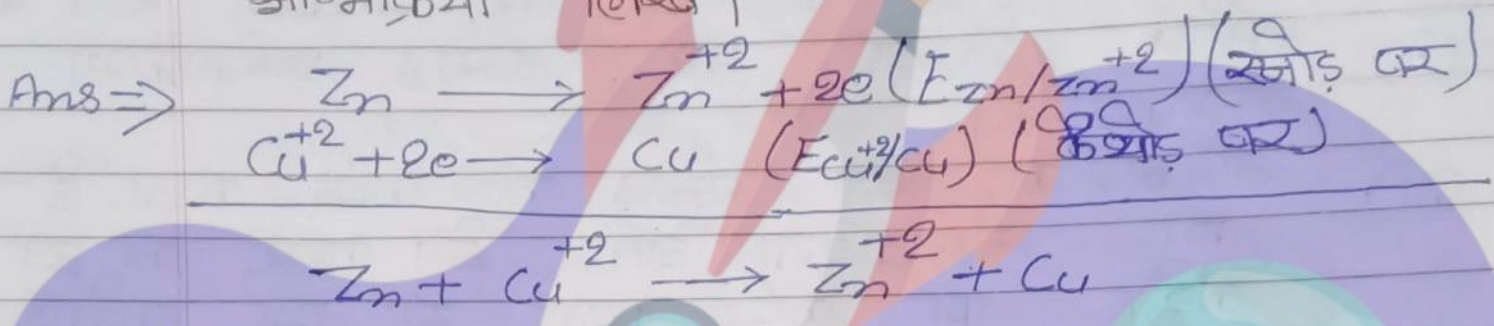 लिखो ।
Ans ⇒ Zn ⟶ Zn⁺² + 2e (E Zn/Zn⁺²) (एनोड पर)
Cu⁺² + 2e ⟶ Cu (E Cu⁺²/Cu) (कैथोड पर)
Zn + Cu⁺² ⟶ Zn⁺² + Cu